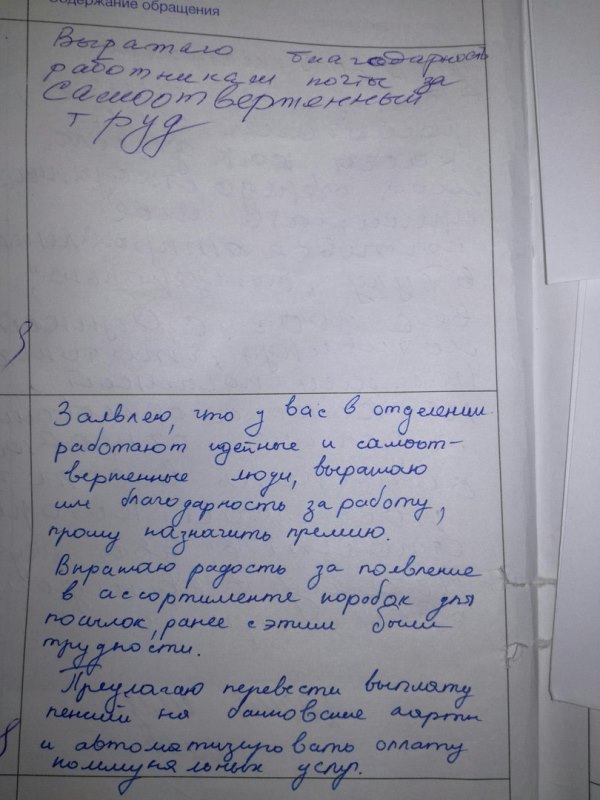 Содержание обращения
Выражаю благодарность
работникам почты за
Самоотверженный
труд
Заявлею, что у вас в отделении
работают идейные и самоот-
верженные люди, выражаю
им благодарность за работу,
прошу назначить премию.
Впражаю радость за появление
в ассортименте коробок для
посылок, ранее с этим были
трудности.
Предлагаю перевести выплату
пенсий на банковские карты
и автоматизировать оплату
коммунальных услуг.